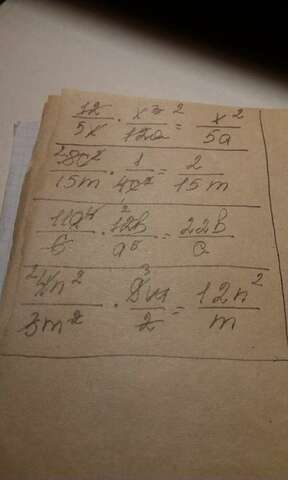 12/5x · x³ ²/12a = x²/5a
²8c²/15m · 1/4c² = 2/15m
11a⁴/6 · ²12b/a⁵ = 22b/a
²4n²/3m² · ³9m/2 = 12n²/m